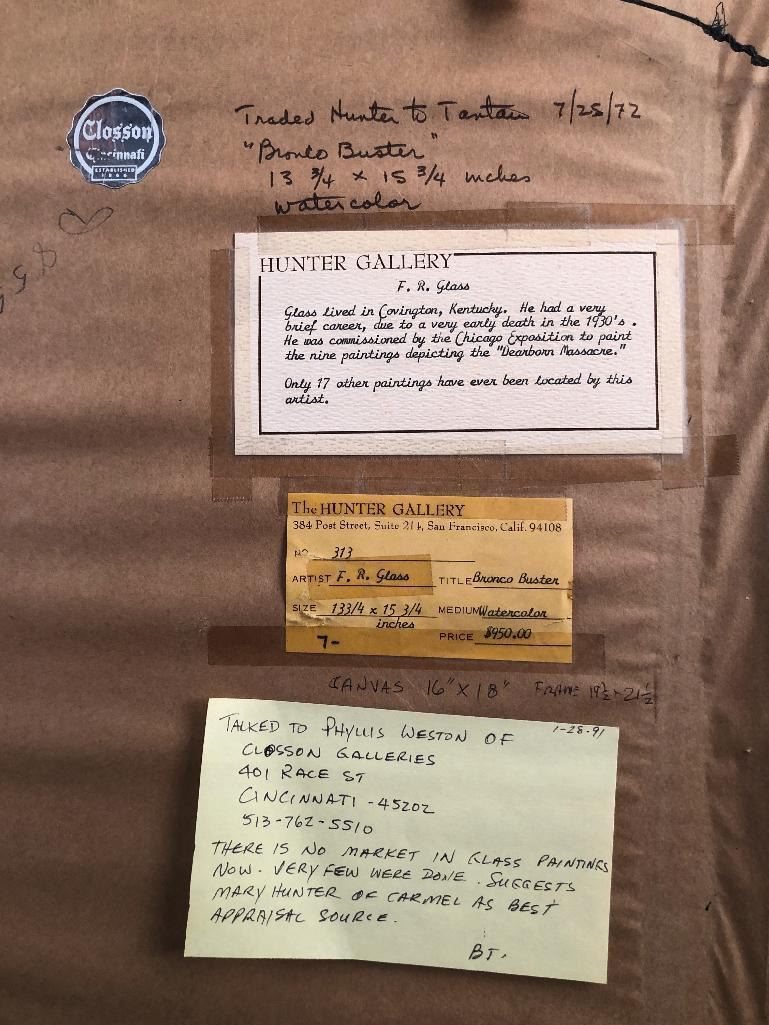 Closson
Cincinnati
ESTABLISHED
1866
Traded Hunter to Tantau 7/25/72
"Bronco Buster"
13 3/4 x 15 3/4 inches
watercolor
HUNTER GALLERY
F. R. Glass
Glass lived in Covington, Kentucky. He had a very
brief career, due to a very early death in the 1930's.
He was commissioned by the Chicago Exposition to paint
the nine paintings depicting the "Dearborn Massacre."
Only 17 other paintings have ever been located by this
artist.
The HUNTER GALLERY
384 Post Street, Suite 214, San Francisco, Calif. 94108
NO. 313
ARTIST F. R. Glass TITLE Bronco Buster
SIZE 133/4 x 15 3/4 inches MEDIUM Watercolor
7- PRICE $950.00
CANVAS 16" X 18" FRAME 19½ x 21½
1-28-91
TALKED TO PHYLLIS WESTON OF
CLOSSON GALLERIES
401 RACE ST
CINCINNATI - 45202
513-762-5510
THERE IS NO MARKET IN GLASS PAINTINGS
NOW. VERY FEW WERE DONE. SUGGESTS
MARY HUNTER OF CARMEL AS BEST
APPRAISAL SOURCE.
BT.